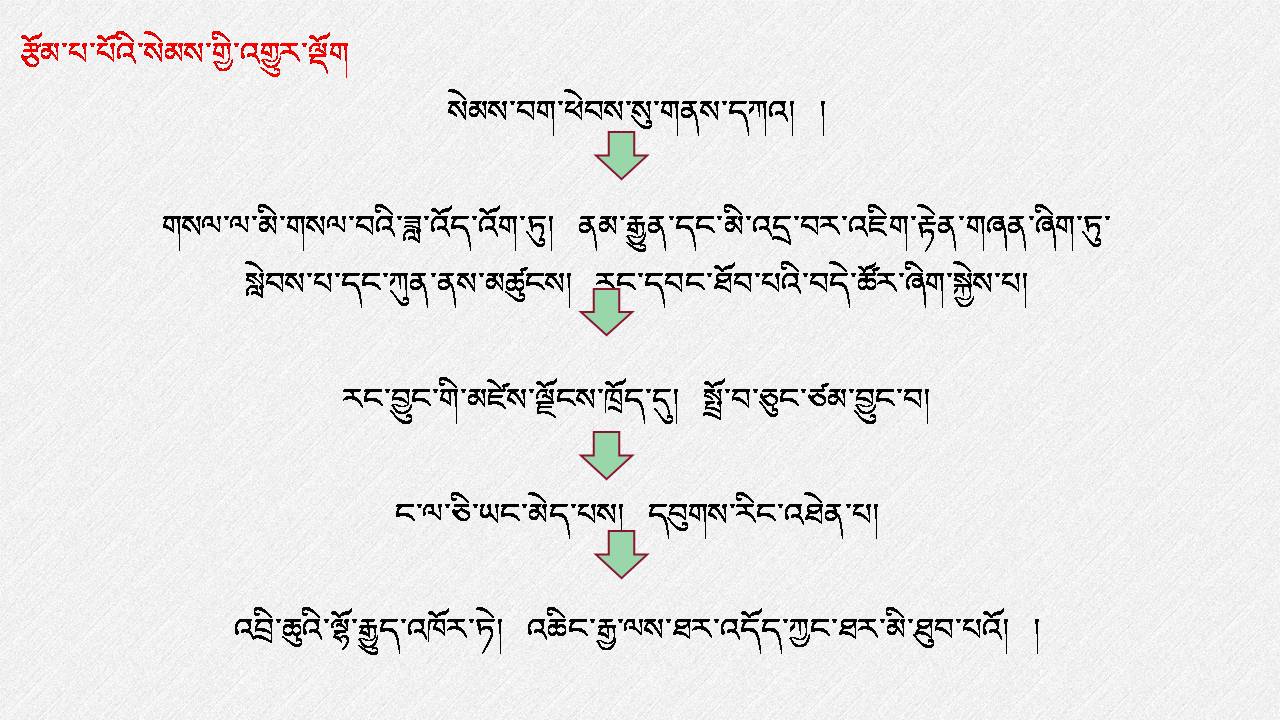 རྩོམ་པ་པོའི་སེམས་ཀྱི་འགྱུར་ལྡོག
སེམས་བག་ཕེབས་སུ་གནས་དཀའ། །
གསལ་ལ་མི་གསལ་བའི་ཟླ་འོད་འོག་ཏུ། ནམ་རྒྱུན་དང་མི་འདྲ་བར་འཇིག་རྟེན་གཞན་ཞིག་ཏུ་
སླེབས་པ་དང་ཀུན་ནས་མཚུངས། རང་དབང་ཐོབ་པའི་བདེ་ཚོར་ཞིག་སྐྱེས་པ།
རང་བྱུང་གི་མཛེས་ལྗོངས་ཁྲོད་དུ། སྤྲོ་བ་ཅུང་ཙམ་བྱུང་བ།
ང་ལ་ཅི་ཡང་མེད་པས། དབུགས་རིང་འཐེན་པ།
འབྲི་ཆུའི་ལྷོ་རྒྱུད་འཁོར་ཏེ། འཆིང་རྒྱ་ལས་ཐར་འདོད་ཀྱང་ཐར་མི་ཐུབ་པའོ། །